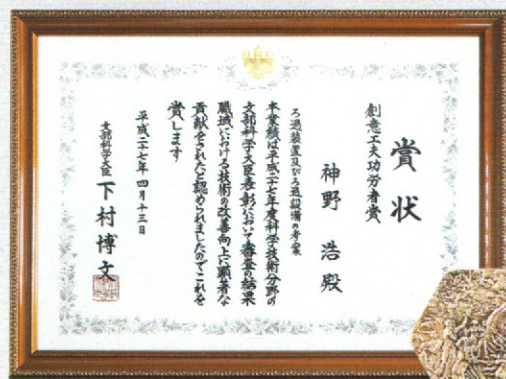 賞状
創意工夫功労者賞
神野 浩 殿
ろ過装置及びろ過設備の考案
本業績は平成二十七年度科学技術分野の
文部科学大臣表彰において審査の結果
職域における技術の改善向上に顕著な
貢献をされたと認められましたのでこれを
賞します
平成二十七年四月十三日
文部科学大臣 下村博文